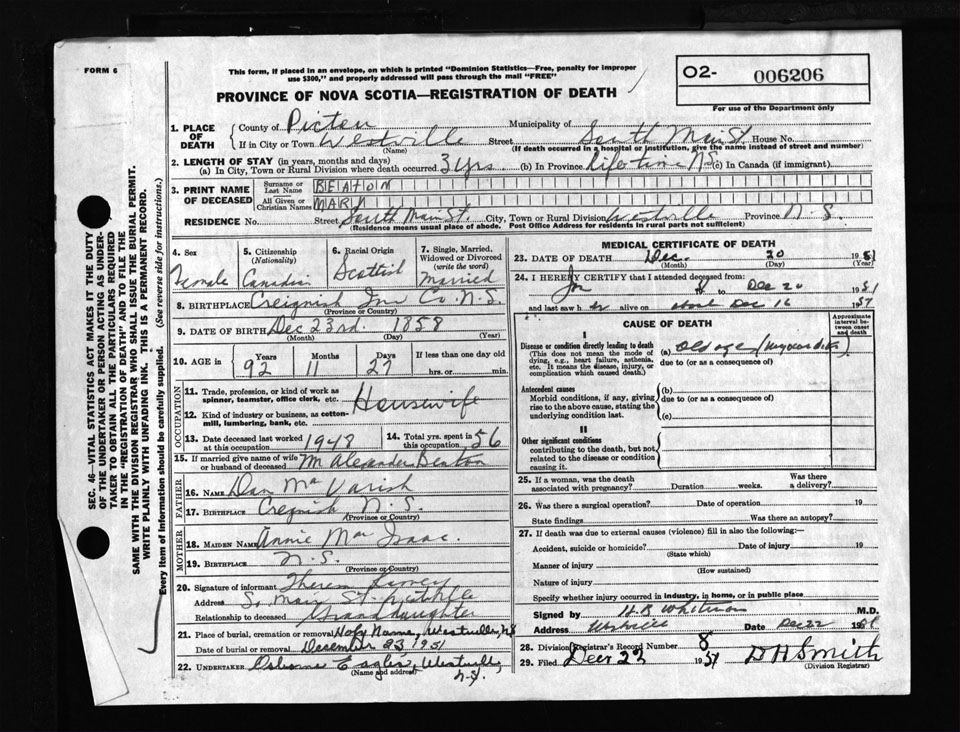 FORM 6
This form, if placed in an envelope, on which is printed "Dominion Statistics—Free, penalty for improper
use $300," and properly addressed will pass through the mail "FREE"
O2- 006206
For use of the Department only
PROVINCE OF NOVA SCOTIA—REGISTRATION OF DEATH
1. PLACE OF DEATH
County of Pictou Municipality of
If in City or Town Westville Street South Main St. House No.
(Name) (If death occurred in a hospital or institution, give the name instead of street and number)
2. LENGTH OF STAY (in years, months and days)
(a) In City, Town or Rural Division where death occurred 3 yrs (b) In Province Life time N.S. (c) In Canada (if immigrant)
3. PRINT NAME OF DECEASED
Surname or Last Name BEATON
All Given or Christian Names MARY
RESIDENCE No. Street South Main St. City, Town or Rural Division Westville Province N.S.
(Residence means usual place of abode. Post Office Address for residents in rural parts not sufficient)
4. Sex Female
5. Citizenship (Nationality) Canadian
6. Racial Origin Scottish
7. Single, Married, Widowed or Divorced (write the word) Married
8. BIRTHPLACE Creignish Inv Co. N.S.
(Province or Country)
9. DATE OF BIRTH Dec 23rd. 1858
(Month) (Day) (Year)
10. AGE in Years 92 Months 11 Days 27 If less than one day old
hrs. or min.
OCCUPATION
11. Trade, profession, or kind of work as spinner, teamster, office clerk, etc. Housewife
12. Kind of industry or business, as cotton-mill, lumbering, bank, etc.
13. Date deceased last worked at this occupation 1948
14. Total yrs. spent in this occupation 56
15. If married give name of wife or husband of deceased M Alexander Beaton
FATHER
16. NAME Dan Mac Varish
17. BIRTHPLACE Creignish N.S.
(Province or Country)
MOTHER
18. MAIDEN NAME Annie Mac Isaac.
19. BIRTHPLACE N.S.
(Province or Country)
20. Signature of informant
Address So. Main St. Westville
Relationship to deceased Granddaughter
21. Place of burial, cremation or removal Holy Name, Westville, N.S
Date of burial or removal December 23, 1951
22. UNDERTAKER Osborne Eagles, Westville, N.S.
(Name and address)
MEDICAL CERTIFICATE OF DEATH
23. DATE OF DEATH Dec. 20 1951
(Month) (Day) (Year)
24. I HEREBY CERTIFY that I attended deceased from
to Dec 20 1951
and last saw her alive on about Dec 16 1951
CAUSE OF DEATH
Approximate interval between onset and death
I
Disease or condition directly leading to death
(This does not mean the mode of dying, e.g., heart failure, asthenia, etc. It means the disease, injury, or complication which caused death.)
(a) old age (myocarditis)
due to (or as a consequence of)
Antecedent causes
Morbid conditions, if any, giving rise to the above cause, stating the underlying condition last.
(b)
due to (or as a consequence of)
(c)
II
Other significant conditions
contributing to the death, but not related to the disease or condition causing it.
25. If a woman, was the death associated with pregnancy? Duration weeks. Was there a delivery?
26. Was there a surgical operation? Date of operation 19
State findings Was there an autopsy?
27. If death was due to external causes (violence) fill in also the following:—
Accident, suicide or homicide? Date of injury 19
(State which)
Manner of injury
(How sustained)
Nature of injury
Specify whether injury occurred in industry, in home, or in public place
Signed by H.B Whitman M.D.
Address Westville Date Dec 22 1951
28. Division Registrar's Record Number 8
29. Filed Decr 22 1951 D H Smith
(Division Registrar)
SEC. 46—VITAL STATISTICS ACT MAKES IT THE DUTY
OF THE UNDERTAKER OR PERSON ACTING AS UNDER-
TAKER TO OBTAIN ALL THE PARTICULARS REQUIRED
IN THE "REGISTRATION OF DEATH" AND TO FILE THE
SAME WITH THE DIVISION REGISTRAR WHO SHALL ISSUE THE BURIAL PERMIT.
WRITE PLAINLY WITH UNFADING INK. THIS IS A PERMANENT RECORD.
Every item of information should be carefully supplied. (See reverse side for instructions.)